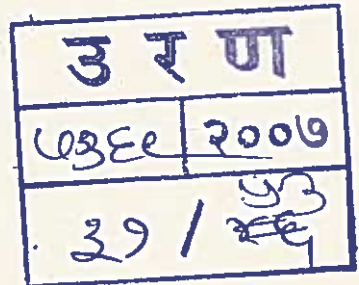 उ र ण
७३६९ २००७
३१ / ५३